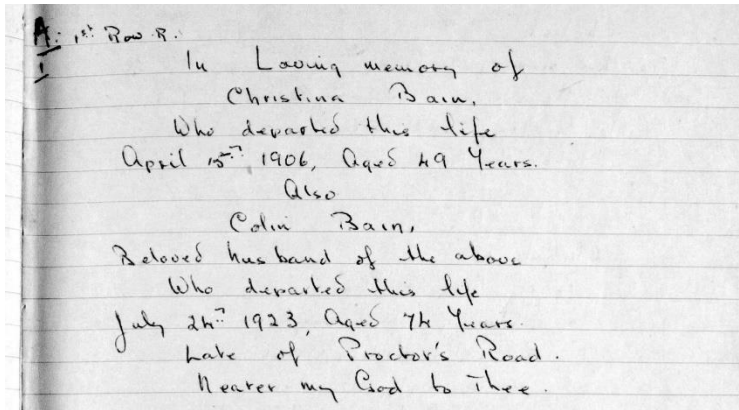 A: 1st Row R.
1
In Loving memory of
Christina Bain,
Who departed this life
April 15th 1906, Aged 49 Years.
Also
Colin Bain,
Beloved husband of the above
Who departed this life
July 24th 1923, Aged 74 Years.
Late of Proctor's Road.
Nearer my God to Thee.